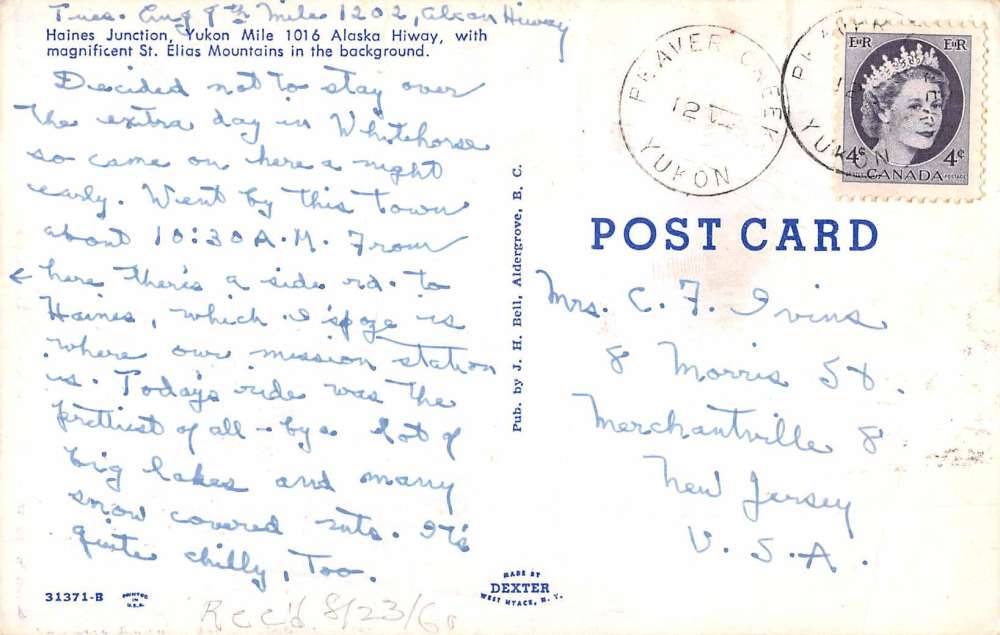 Tues. Aug 9th Mile 1202, Alcan Hiway
Haines Junction, Yukon Mile 1016 Alaska Hiway, with
magnificent St. Elias Mountains in the background.
Decided not to stay over
the extra day in Whitehorse
so came on here a night
early. Went by this town
about 10:30 A.M. From
← here there's a side rd. to
Haines, which I s'poze is
where our mission station
is. Today's ride was the
prettiest of all - by a lot of
big lakes and many
snow covered mts. It's
quite chilly, too.
31371-B
PRINTED
IN
U.S.A.
Rec'd 8/23/60
Pub. by J. H. Bell, Aldergrove, B. C.
MADE BY
DEXTER
WEST NYACK, N. Y.
BEAVER CREEK
12 VIII
YUKON
YUKON
EIIR EIIR
4¢ 4¢
CANADA
POSTAGE
POST CARD
Mrs. C. F. Ivins
8 Morris St.
Merchantville 8
New Jersey
U. S. A.